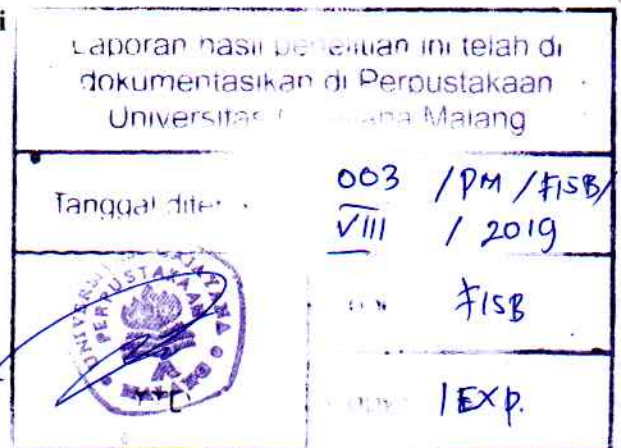 i
Laporan hasil penelitian ini telah di
dokumentasikan di Perpustakaan
Universitas Malang
Tanggal
003 / PM / FISB/
VIII / 2019
UNIVERSITAS
PERPUSTAKAAN
MALANG
FISB
1 EXP.